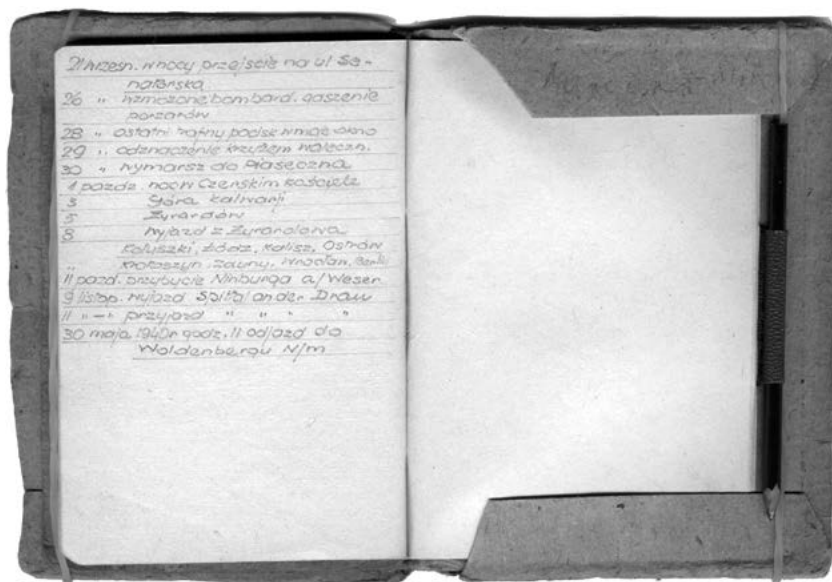 21 wrzesn. w nocy przejście na ul Se-
natorska
26 " wzmożone bombard. gaszenie
pożarów
28 " ostatni trafny pocisk w moje okno
29 " odznaczenie krzyżem waleczn.
30 " wymarsz do Piaseczna
1 pazdz. noc w Czerskim kościele
3 Góra Kalwarji
5 Żyrardów
8 wyjazd z Żyrardowa
Koluszki, Łódź, Kalisz, Ostrów
" Krotoszyn, Zduny, Wrocław,
11 pazd. przybycie Ninburga a/Weser
9 listop. wyjazd Spittal an der Drau
11 " —"— przyjazd " " " "
30 maja 1940r godz. 11 odjazd do
Woldenbergu N/m